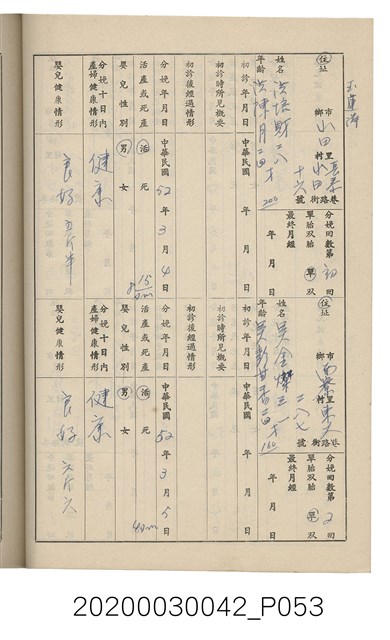 住址 市鄉 山田 里村 山田 巷路街 十六號
分娩回數第 初 回
單胎双胎 單
最終月經 年 月 日
姓名 洪培財 二八
年齡 洪陳月 二四才
初診 年 月 日
初診時所見概要
初診後經過情形
分娩年月日 中華民國 52 年 3 月 4 日
活產或死產 活 死
嬰兒性別 男 女
分娩十日內產婦健康情形 健康
嬰兒健康情形 良好 五斤半
住址 市鄉 里村 巷路街 二八七號
分娩回數第 2 回
單胎双胎 單
最終月經 年 月 日
姓名 吳金燦 三一
年齡 二四才
初診 年 月 日
初診時所見概要
初診後經過情形
分娩年月日 中華民國 52 年 3 月 5 日
活產或死產 活 死
嬰兒性別 男 女
分娩十日內產婦健康情形 健康
嬰兒健康情形 良好 六斤六
20200030042_P053